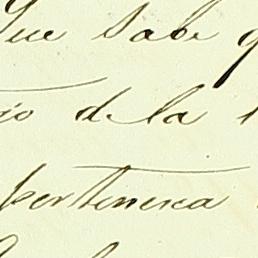 Que sabe q
io de la
pertenencia